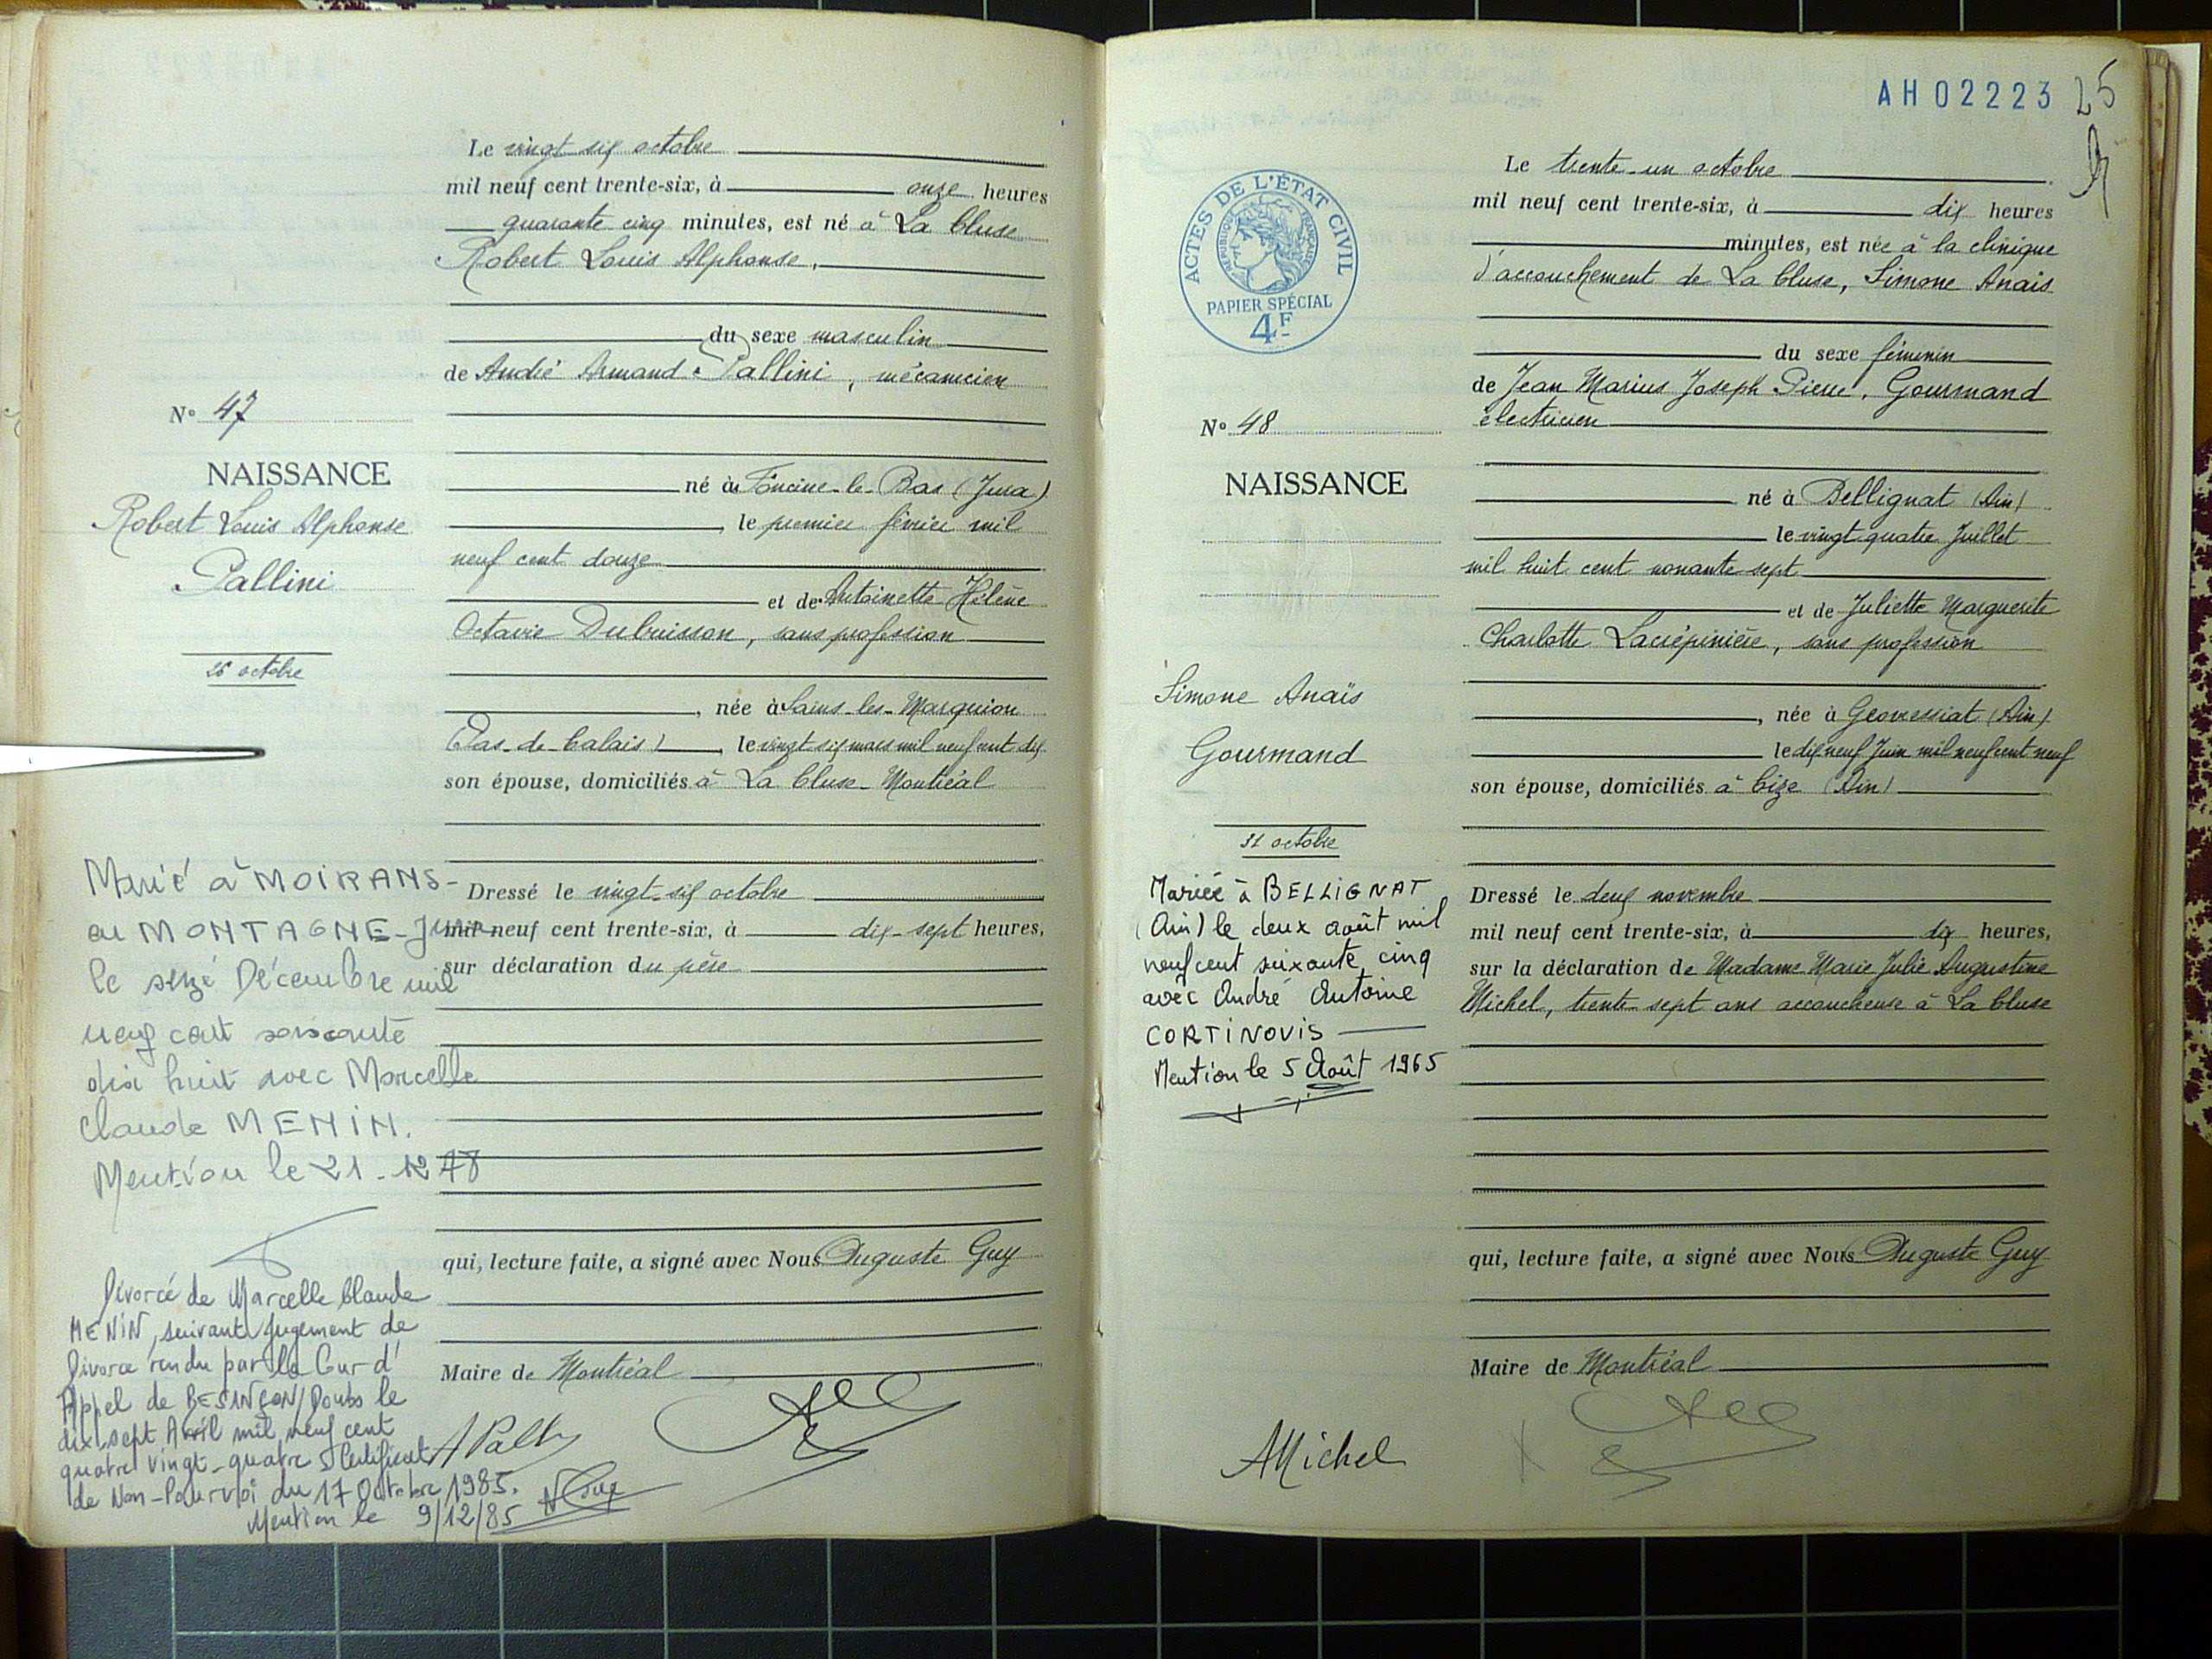 Le vingt six octobre
mil neuf cent trente-six, à onze heures
quarante cinq minutes, est né à La Cluse
Robert Louis Alphonse,
du sexe masculin
de André Armand Pallini, mécanicien
N° 47
NAISSANCE
Robert Louis Alphonse
Pallini
26 octobre
né à Foncine-le-Bas (Jura)
, le premier février mil
neuf cent douze
et de Antoinette Hélène
Octavie Dubuisson, sans profession
, née à Sains-les-Marquion
(Pas-de-Calais), le vingt six mars mil neuf cent dix
son épouse, domiciliés à La Cluse-Montréal
Dressé le vingt-six octobre
mil neuf cent trente-six, à dix-sept heures,
sur déclaration du père
qui, lecture faite, a signé avec Nous Auguste Guy
Maire de Montréal
Marié à MOIRANS-
en MONTAGNE-Jura
le seize Décembre mil
neuf cent soixante
dix huit avec Marcelle
Claude MENIN.
Mention le 21-12 78
Divorcé de Marcelle Claude
MENIN, suivant Jugement de
Divorce rendu par la Cour d'
Appel de BESANÇON/Doubs le
dix-sept Avril mil neuf cent
quatre vingt-quatre & Certificat
de Non-Pourvoi du 17 Octobre 1985.
Mention le 9/12/85
AH 02223
25
ACTES DE L'ÉTAT CIVIL
RÉPUBLIQUE FRANÇAISE
PAPIER SPÉCIAL
4F
Le trente-un octobre
mil neuf cent trente-six, à dix heures
minutes, est née à la clinique
d'accouchement de La Cluse, Simone Anaïs
du sexe féminin
de Jean Marius Joseph Pierre, Gourmand
électricien
N° 48
NAISSANCE
Simone Anaïs
Gourmand
31 octobre
né à Bellignat (Ain)
le vingt quatre Juillet
mil huit cent nonante sept
et de Juliette Marguerite
Charlotte Lacrépinière, sans profession
, née à Geovressiat (Ain)
le dix neuf Juin mil neuf cent neuf
son épouse, domiciliés à Cize (Ain)
Dressé le deux novembre
mil neuf cent trente-six, à dix heures,
sur la déclaration de Madame Marie Julie Augustine
Michel, trente-sept ans accoucheuse à La Cluse
qui, lecture faite, a signé avec Nous Auguste Guy
Maire de Montréal
Mariée à BELLIGNAT
(Ain) le deux août mil
neuf cent soixante cinq
avec André Antoine
CORTINOVIS
Mention le 5 Août 1965
AMichel